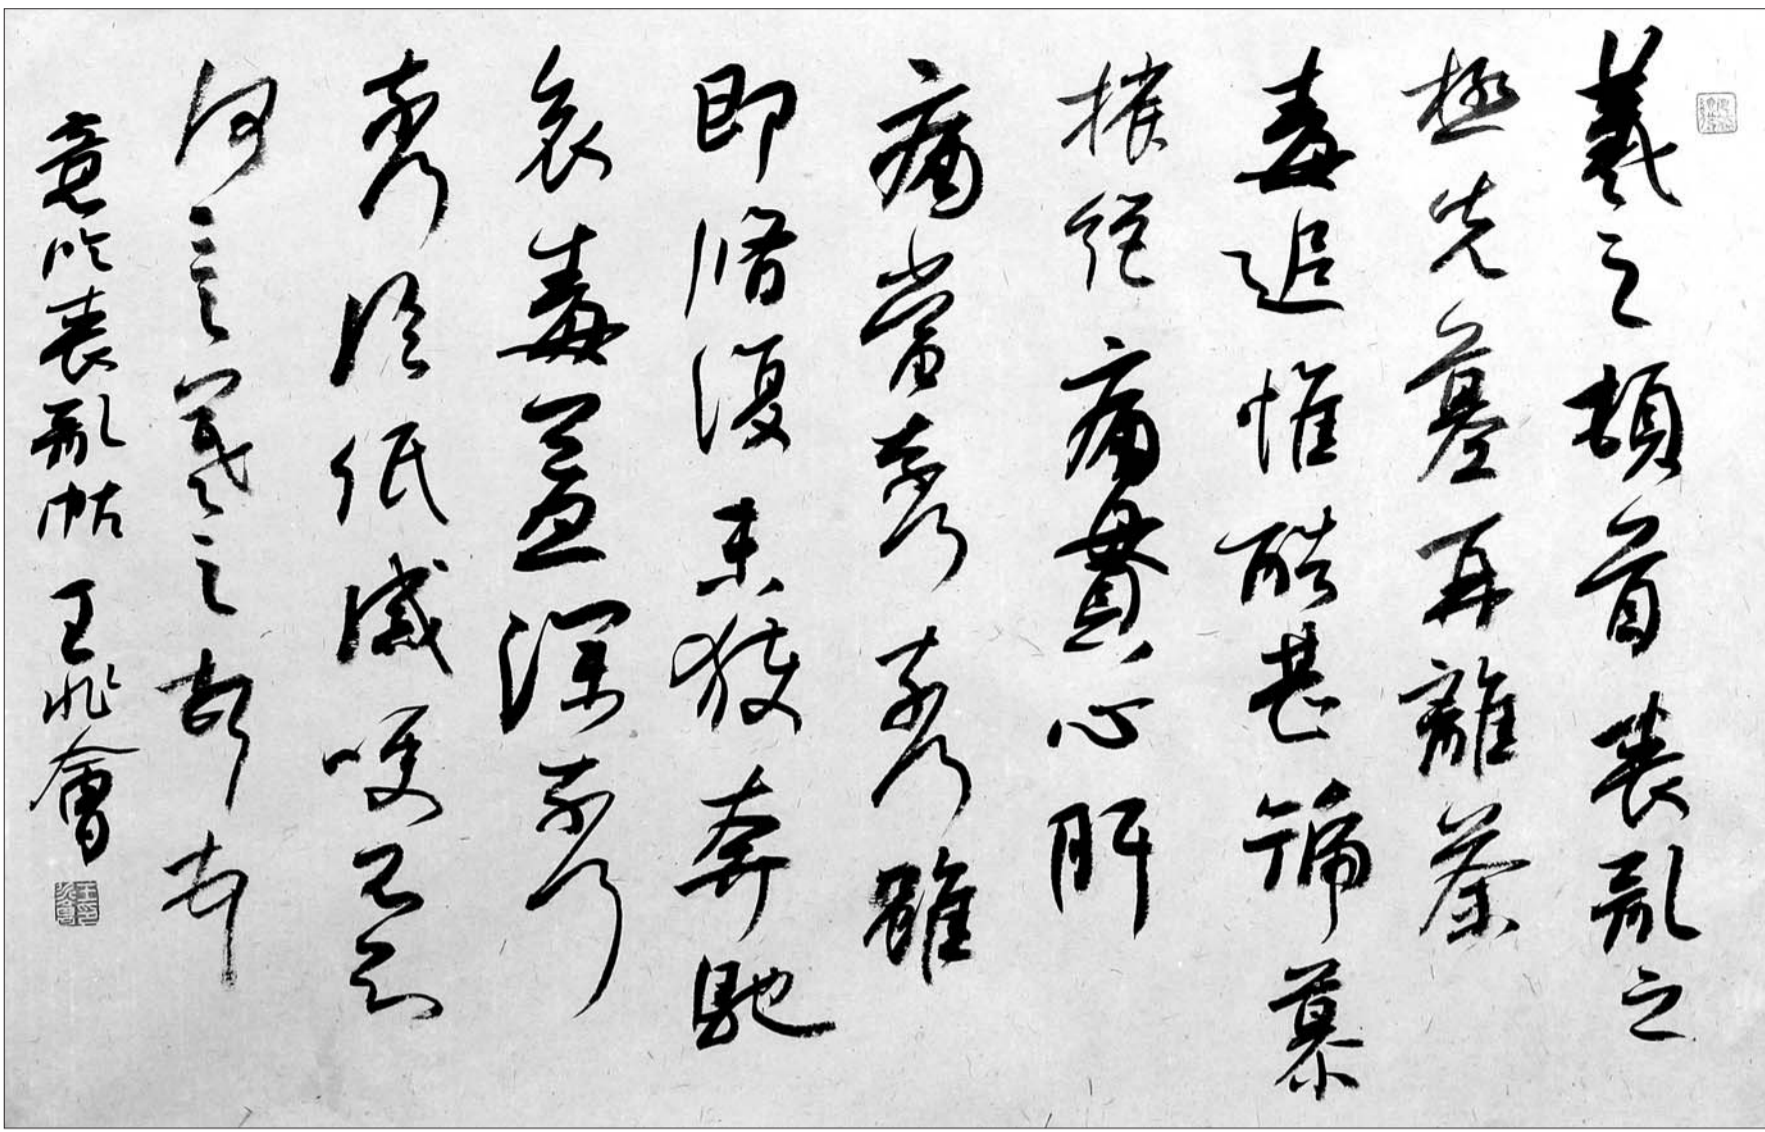 羲之頓首喪亂之
極先墓再離荼
毒追惟酷甚號慕
摧絕痛貫心肝
痛當奈何奈何雖
即脩復未獲奔馳
哀毒益深奈何
奈何臨紙感哽不知
何言羲之頓首
意临喪亂帖 王兆會